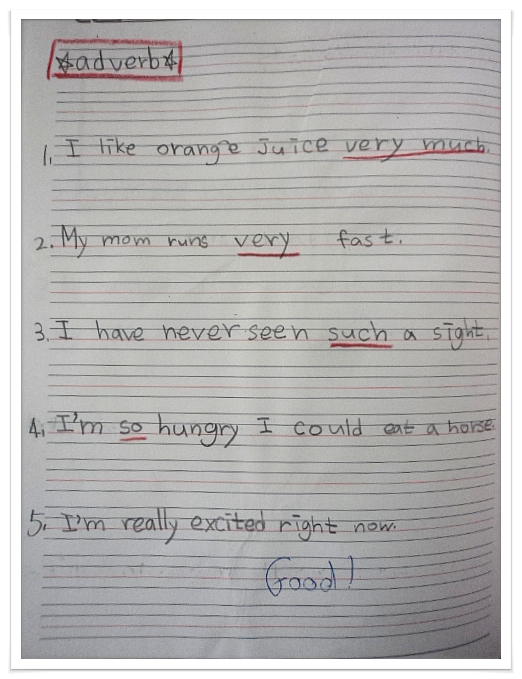 ☆adverb☆
1. I like orange juice very much.
2. My mom runs very fast.
3. I have never seen such a sight.
4. I'm so hungry I could eat a horse.
5. I'm really excited right now.
Good!